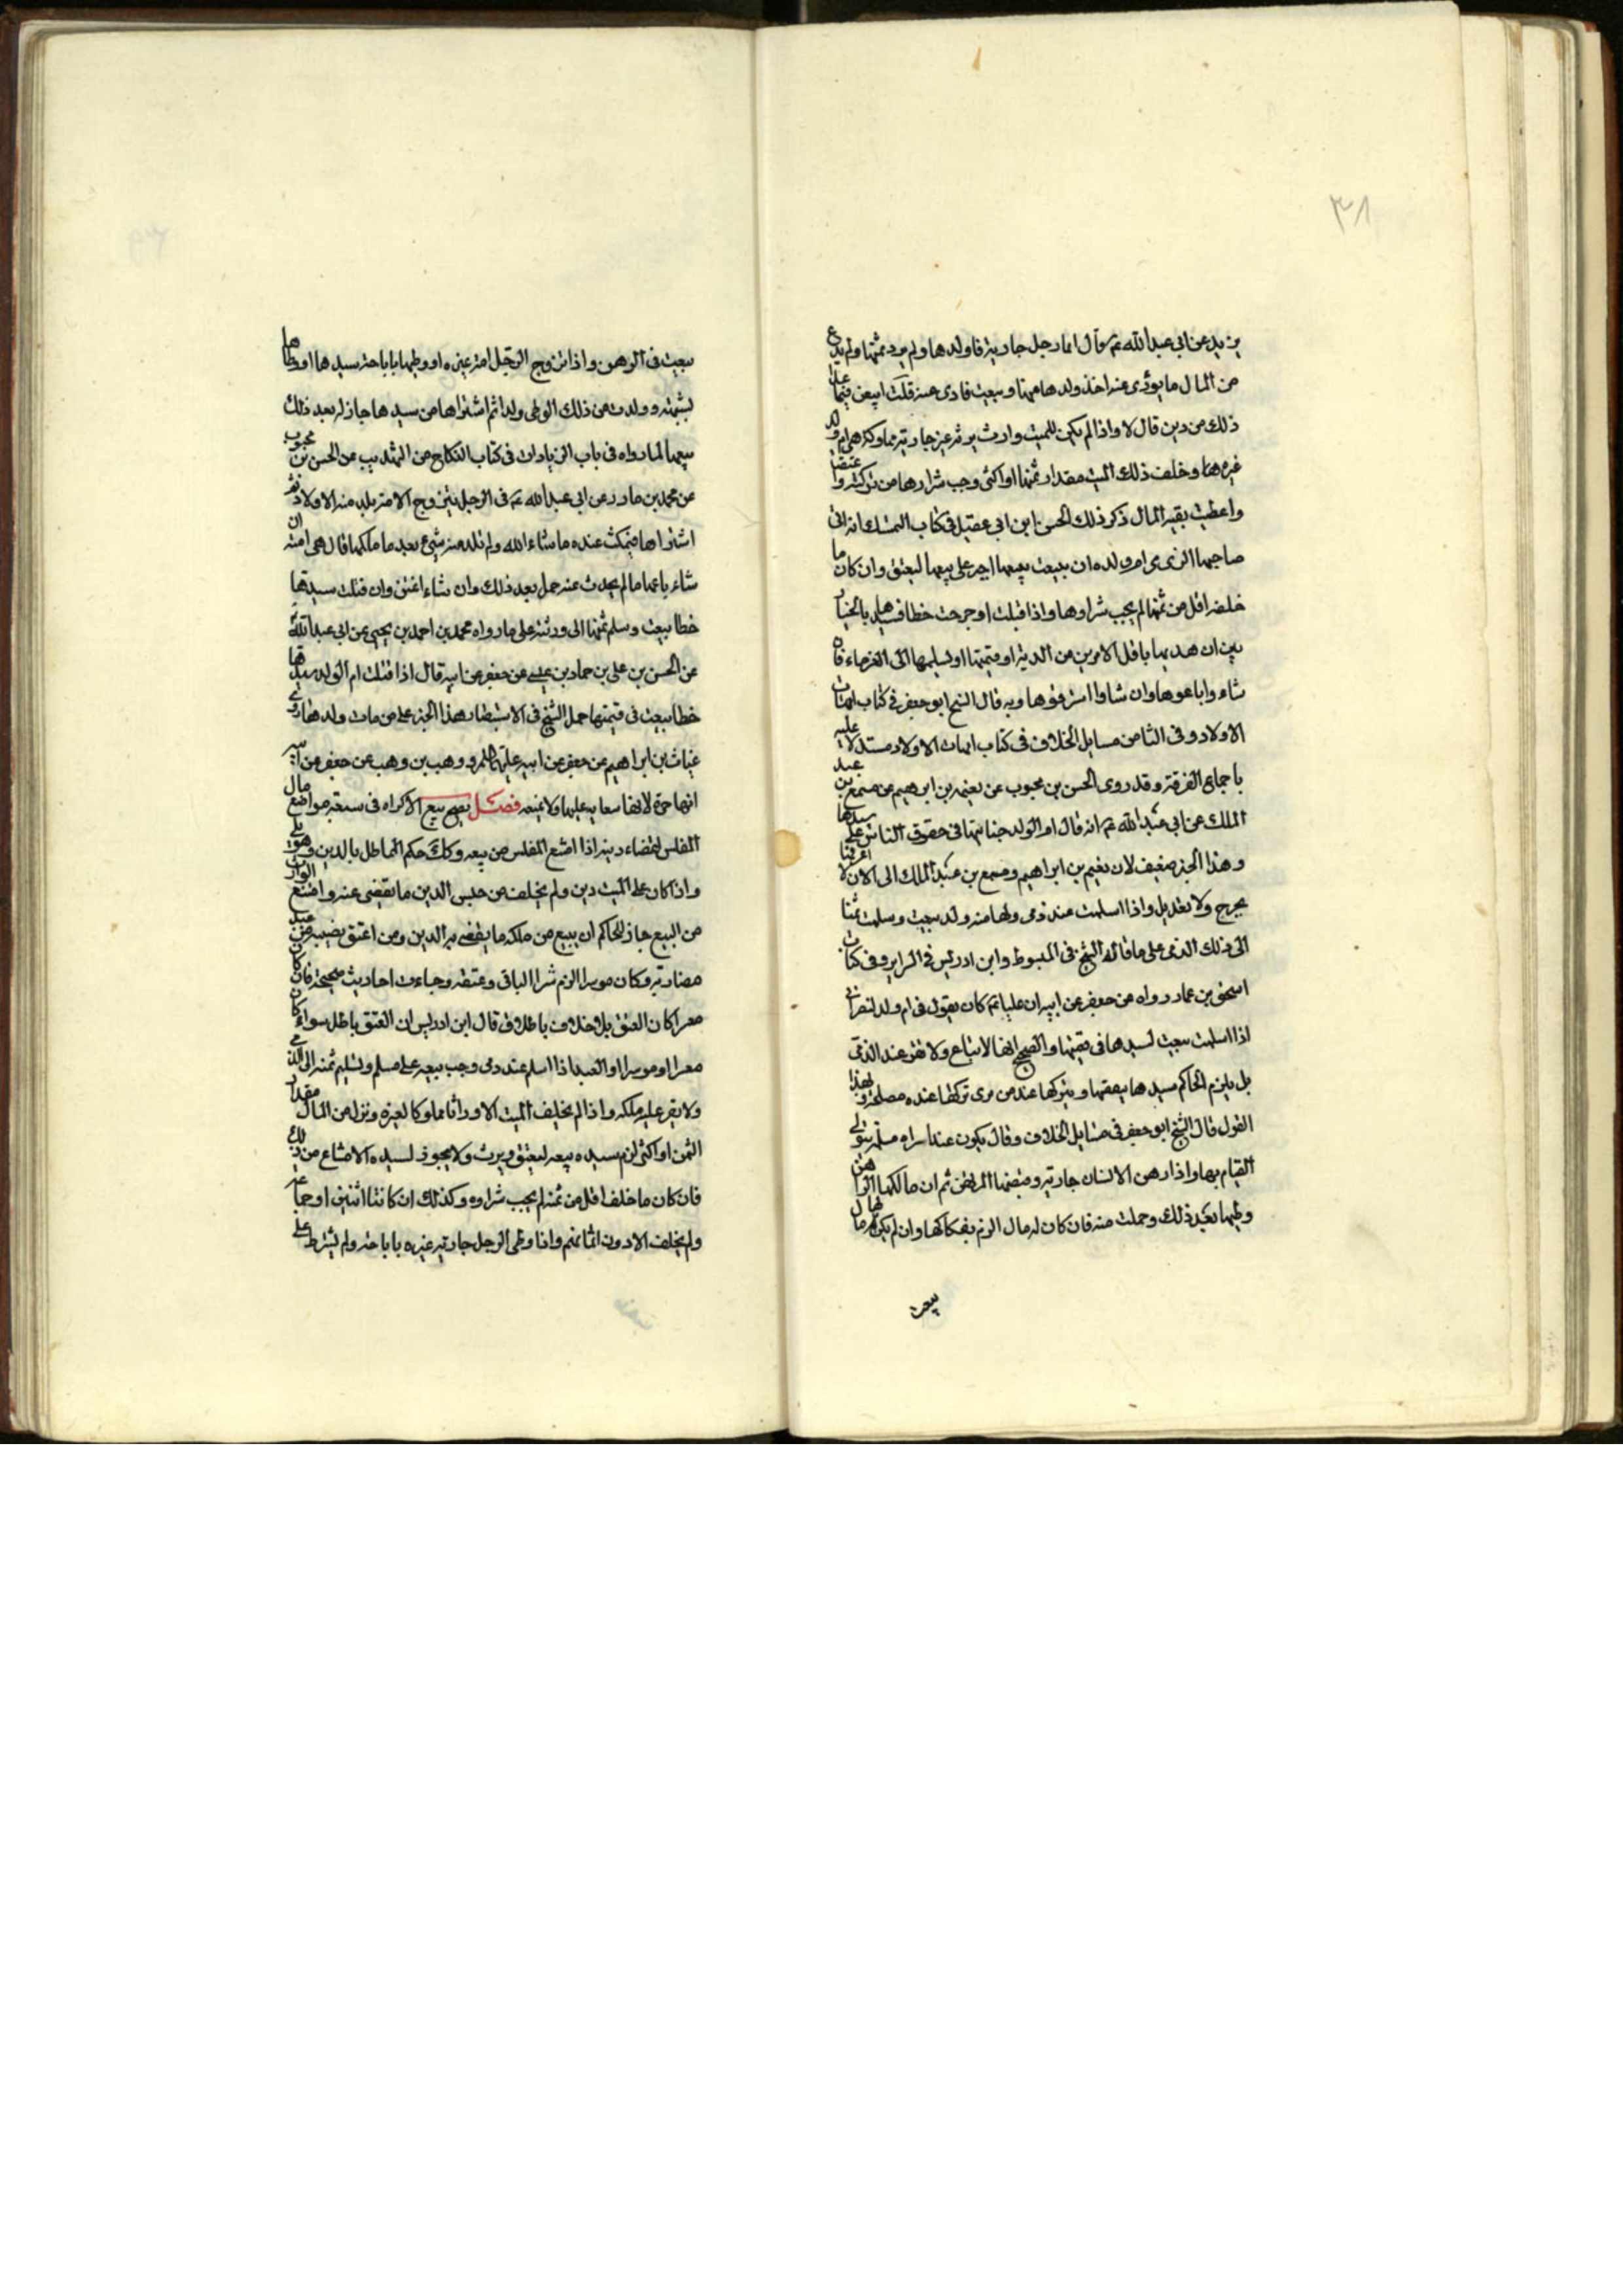 ٣٨
يزيد عن ابي عبد الله عم قال ايما رجل جارية فاولدها ولم يود ثمنها ولم يدع
من المال ما يودى عنه اخذ ولدها منها وبيعت فادى عنه قلت ايبعن فيما
ذلك من دين قال لا واذا لم يكن للميت وارث يرثه غير جاريته مملوكه هى ام ولد
غيرها وخلف ذلك الميت مقدار ثمنها او اكثر وجب شراوها من تركته واعتقها
واعطيت بقية المال ذكر ذلك الحسن ابن ابى عقيل فى كتاب المتمسك انه اتى
صاحبها الذى هى ام ولده ان يبيعت بيعها اجبر على بيعها لتعتق وان كان ما
خلفه اقل من ثمنها لم يجب شراوها واذا قتلت او جرحت خطا فسيدها بالخيار
بين ان يفديها باقل الامرين من الدية او قيمتها او تسليمها الى الغرماء فان
شاءوا باعوها وان شاوا استرقوها وبه قال الشيخ ابو جعفر فى كتاب امهات
الاولاد وفى الثامن مسايل الخلاف فى كتاب امهات الاولاد مستدلا عليه
باجماع الفرقة وقد روى الحسن بن محبوب عن نعيم بن ابرهيم عن مسمع بن عبد
الملك عن ابى عبد الله عم انه قال ام الولد جنايتها فى حقوق الناس على سيدها
وهذا الخبر ضعيف لان نعيم بن ابراهيم ومسمع بن عبد الملك الى الان لا اعرفهما
بجرح ولا تعديل واذا اسلمت عند ذمى ولها منه ولد بيعت وسلمت ثمنها
الى ذلك الذمى على ما قاله الشيخ فى المبسوط وابن ادريس فى السراير وفى كتاب
اسحق بن عمار رواه عن جعفر عن ابيه ان عليا عم كان يقول فى ام ولد لنصرانى
اذا اسلمت بيعت لسيدها فى قيمتها والصحيح انها لا تباع ولا تقر عند الذمى
بل يلزم الحاكم سيدها بنفقتها ويتركها عند من يرى تركها عنده مصلحة وبهذا
القول قال الشيخ ابو جعفر فى مسايل الخلاف وقال يكون عند امراة مسلمة يتولى
القيام بها واذا رهن الانسان جاريته وقبضها المرتهن ثم ان مالكها الراهن
وطيها بعد ذلك وحملت منه فان كان له مال الزم بفكاكها وان لم يكن له مال
بيعت
بيعت فى الرهن واذا تزوج الرجل امة غيره او وطيها باباحة سيدها او وطاها
بشبهة وولدت من ذلك الوطى ولدا ثم اشتراها من سيدها جاز له بعد ذلك
بيعها لما رواه فى باب الزيادات فى كتاب النكاح من التهذيب عن الحسن بن محبوب
عن محمد بن مارد عن ابى عبد الله عم فى الرجل يتزوج الامة يلد منه الاولاد ثم
اشتراها فيمكث عنده ما شاء الله ولم تلد منه شيئ بعد ما ملكها قال هى امته ان
شاء باعها ما لم يحدث عنده حمل بعد ذلك وان شاء اعتق وان قتلت سيدها
خطا بيعت وسلم ثمنها الى ورثته على ما رواه محمد بن احمد بن يحيى عن ابى عبد الله
عن الحسن بن على بن حماد بن عيسى عن جعفر عن ابيه قال اذا قتلت ام الولد سيدها
خطا بيعت فى قيمتها حمل الشيخ فى الاستبصار هذا الخبر على من مات ولدها روى
غياث بن ابراهيم عن جعفر عن ابيه عليهما السلام ووهب بن وهب عن جعفر عن ابيه
انها حرة لا سعاية عليها فصل يصح بيع الاكراه فى سبعة مواضع مال
المفلس لقضاء دينه اذا امتنع المفلس من بيعه وكك حكم المماطل بالدين وهو ملى
واذا كان على الميت دين ولم يخلف من جنس الدين ما يقضى عنه وامتنع الوارث
من البيع جاز للحاكم ان يبيع من ملكه ما يقضى به الدين ومن اعتق نصيبه من عبد
مضارة وكان موسرا الزم شرا الباقى وعتقه وجاءت احاديث صحيحة فان كان
معسرا كان العتق باطلا وقال ابن ادريس ان العتق باطل سواء كان
معسرا او موسرا او العبد اذا اسلم عند ذمى وجب بيعه على مسلم وتسليم ثمنه الى الذمى
ولا يقر عليه ملكه واذا لم يخلف الميت الا وارثا مملوكا لغيره وترك من المال مقدار
الثمن او اكثر لزم سيده بيعه ليعتق ويرث ولا يجوز لسيده الامتناع من ذلك
فان كان ما خلفه اقل من ثمنه لم يجب شراوه وكذلك ان كانتا اثنين او جماعة
ولم يخلف الا دون اثمانهم واذا وطى الرجل جارية غيره باباحة ولم يشترط على